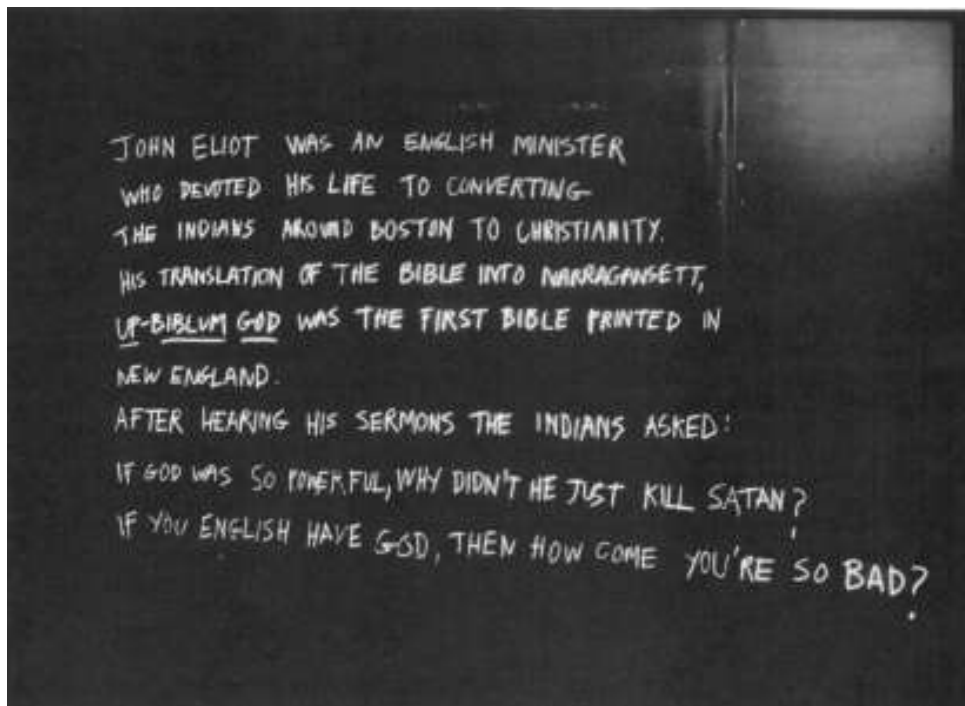 JOHN ELIOT WAS AN ENGLISH MINISTER
WHO DEVOTED HIS LIFE TO CONVERTING
THE INDIANS AROUND BOSTON TO CHRISTIANITY.
HIS TRANSLATION OF THE BIBLE INTO NARRAGANSETT,
UP-BIBLUM GOD WAS THE FIRST BIBLE PRINTED IN
NEW ENGLAND.
AFTER HEARING HIS SERMONS THE INDIANS ASKED:
IF GOD WAS SO POWERFUL, WHY DIDN'T HE JUST KILL SATAN?
IF YOU ENGLISH HAVE GOD, THEN HOW COME YOU'RE SO BAD?